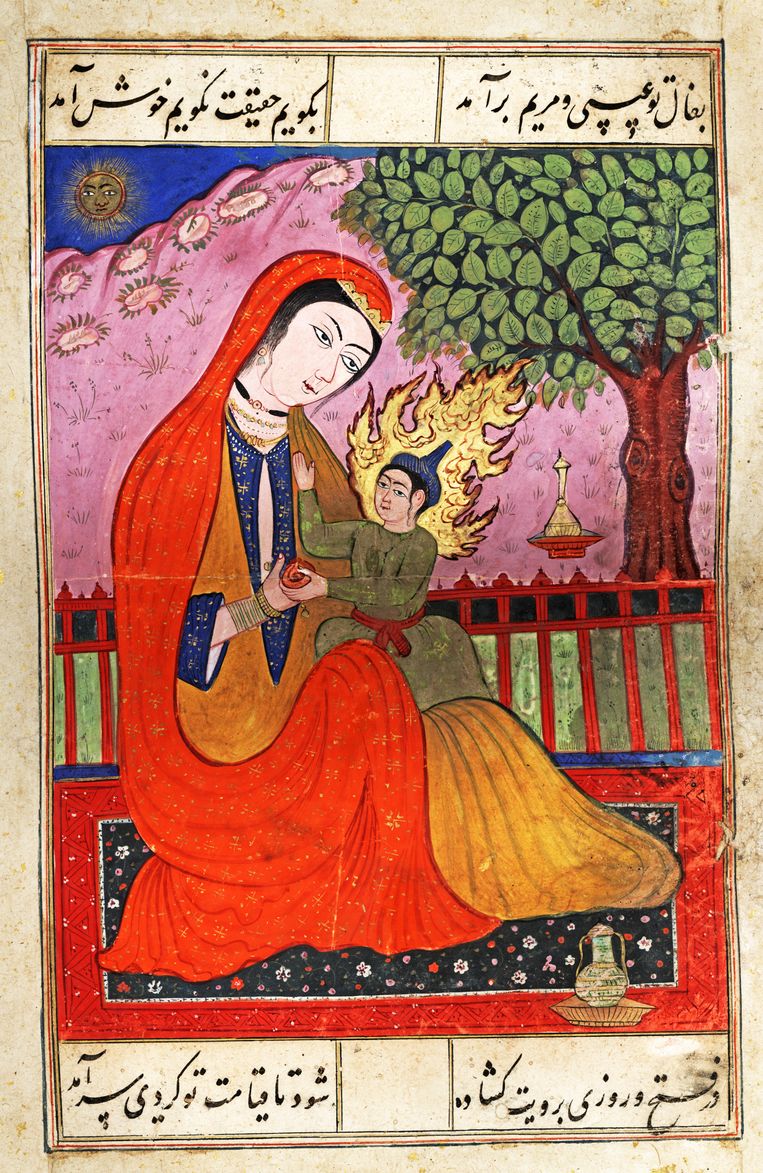 بفال تو عیسی و مریم برآمد
بکویم حقیقت نکویم خوش آمد
در فتح و روزی برویت کشاده
شود تا قیامت تو کردی سرآمد